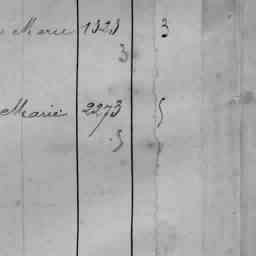 Marie 1323 3
3
Marie 2273
3